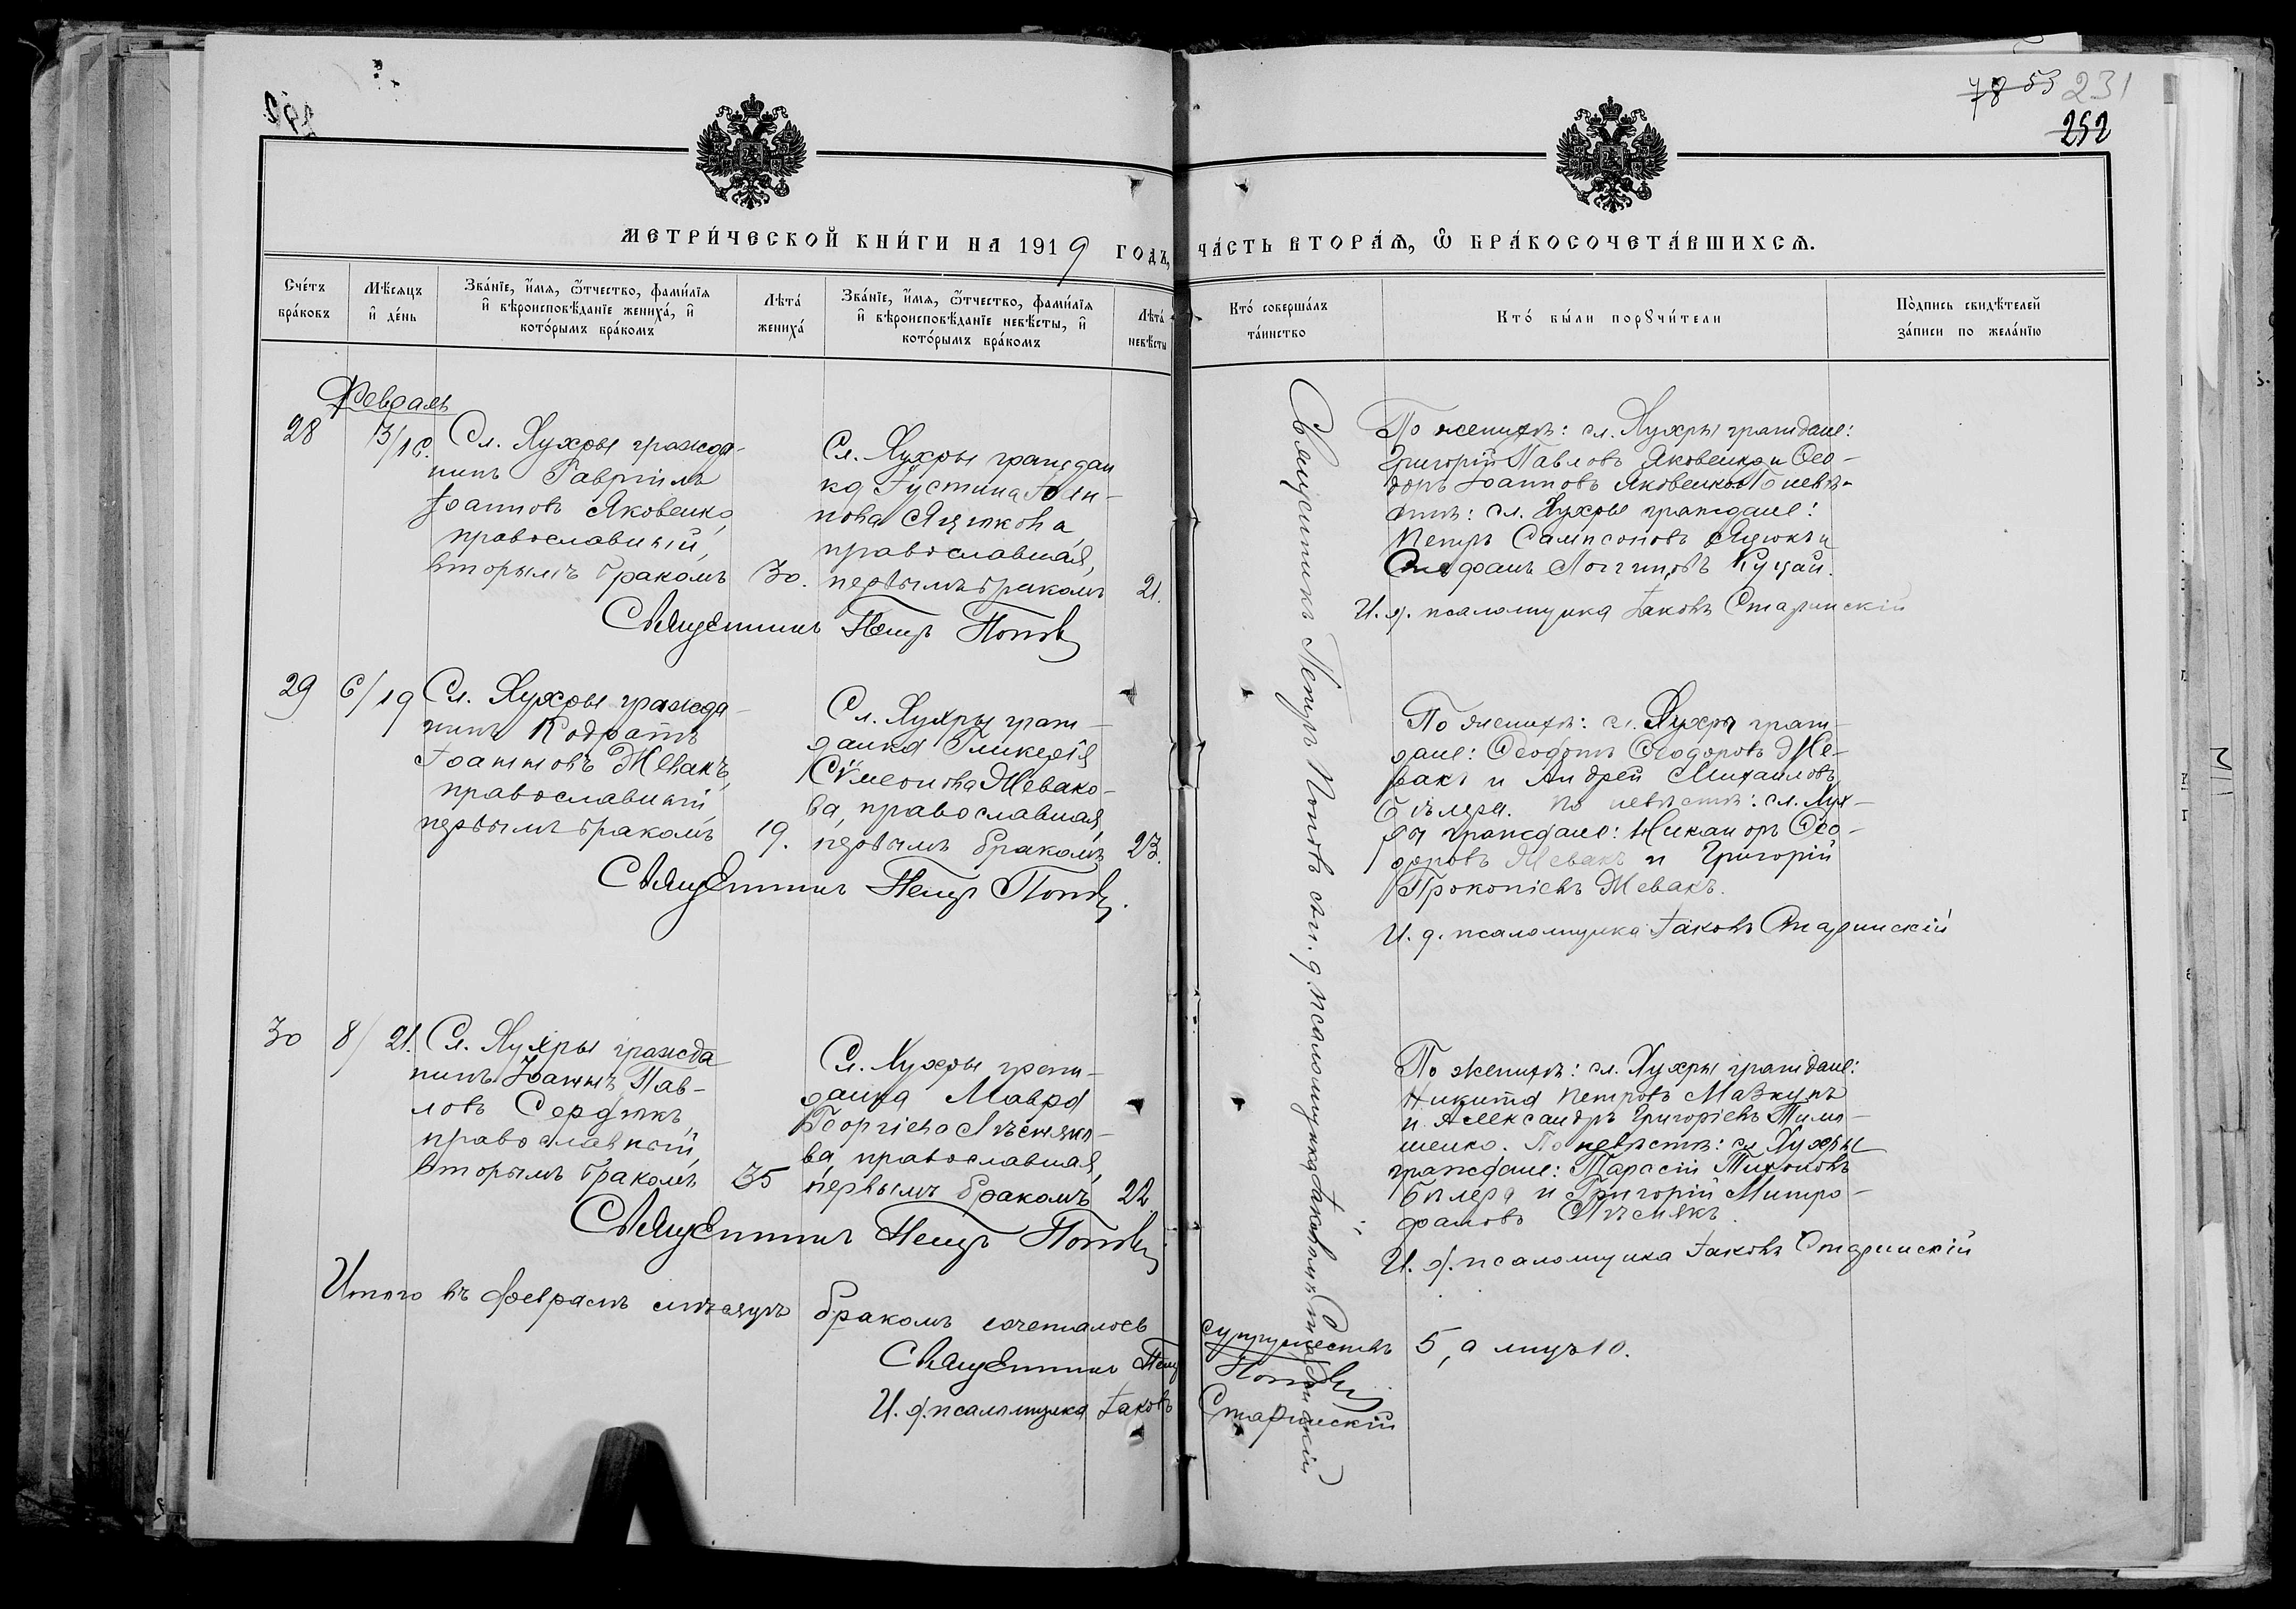 78 53 231
252
МЕТРИ́ЧЕСКОЙ КНИ́ГИ НА 1919 ГОДЪ,
ЧА́СТЬ ВТОРА́Ѧ, Ѿ БРАКОСОЧЕТА́ВШИХСѦ.
Сче́тъ
бра́ковъ
Мѣ́сяцъ
и де́нь
Зва́нїе, и́мя, ѻ́тчество, фами́лїя
и вѣроисповѣ́данїе жениха́, и
кото́рымъ бра́комъ
Лѣта́
жениха́
Зва́нїе, и́мя, ѻ́тчество, фами́лїя
и вѣроисповѣ́данїе невѣ́сты, и
кото́рымъ бра́комъ
Лѣта́
невѣ́сты
Кто́ соверша́лъ
та́инство
Кто́ бы́ли порꙋчи́тели
По́дпись свидѣ́телей
за́писи по жела́нїю
Февраль
28
3/16.
Сл. Хухры гражда-
нинъ Гавріилъ
Іоанновъ Яковенко,
православный,
вторымъ бракомъ
30.
Сл. Хухры граждан
ка Іустина Іоан-
нова Яцюкова,
православная,
первымъ бракомъ
21.
Священникъ Петръ Поповъ
По женихѣ: сл. Хухры граждане:
Григорій Павловъ Яковенко и Ѳео-
доръ Іоанновъ Яковенко. По невѣ-
стѣ: сл. Хухры граждане:
Петръ Сампсоновъ Яцюкъ и
Стефанъ Логгиновъ Куцай.
И. д. псаломщика Іаковъ Старинскій
29
6/19
Сл. Хухры гражда-
нинъ Кодратъ
Іоанновъ Жевакъ,
православный
первымъ бракомъ
19.
Сл. Хухры граж-
данка Гликерія
Сѵмеонова Жевако-
ва, православная,
первымъ бракомъ
23.
Священникъ Петръ Поповъ.
По женихѣ: сл. Хухры граж-
дане: Ѳеодотъ Ѳеодоровъ Же-
вакъ и Андрей Михаиловъ
Бѣлера. По невѣстѣ: сл. Хух-
ры граждане: Никаноръ Ѳео-
доровъ Жевакъ и Григорій
Прокопіевъ Жевакъ.
И. д. псаломщика Іаковъ Старинскій
30
8/21.
Сл. Хухры гражда
нинъ Іоаннъ Пав-
ловъ Сердюкъ,
православный,
вторымъ бракомъ
35
Сл. Хухры граж-
данка Мавра
Георгіева Лѣсняко-
ва, православная,
первымъ бракомъ
22
Священникъ Петръ Поповъ
По женихѣ: сл. Хухры граждане:
Никита Петровъ Мазкунъ
и Александръ Григоріевъ Тимо-
шенко. По невѣстѣ: сл. Хухры
граждане: Тарасій Тихоновъ
Бѣлера и Григорій Митро-
фановъ Лѣснякъ.
И. д. псаломщика Іаковъ Старинскій
Священникъ Петръ Поповъ съ и. д. псаломщика Іаковомъ Старинскій
Итого въ февралѣ мѣсяцѣ бракомъ сочеталось супружествъ 5, а лицъ 10.
Священникъ Петръ Поповъ
И. д. псаломщика Іаковъ Старинскій